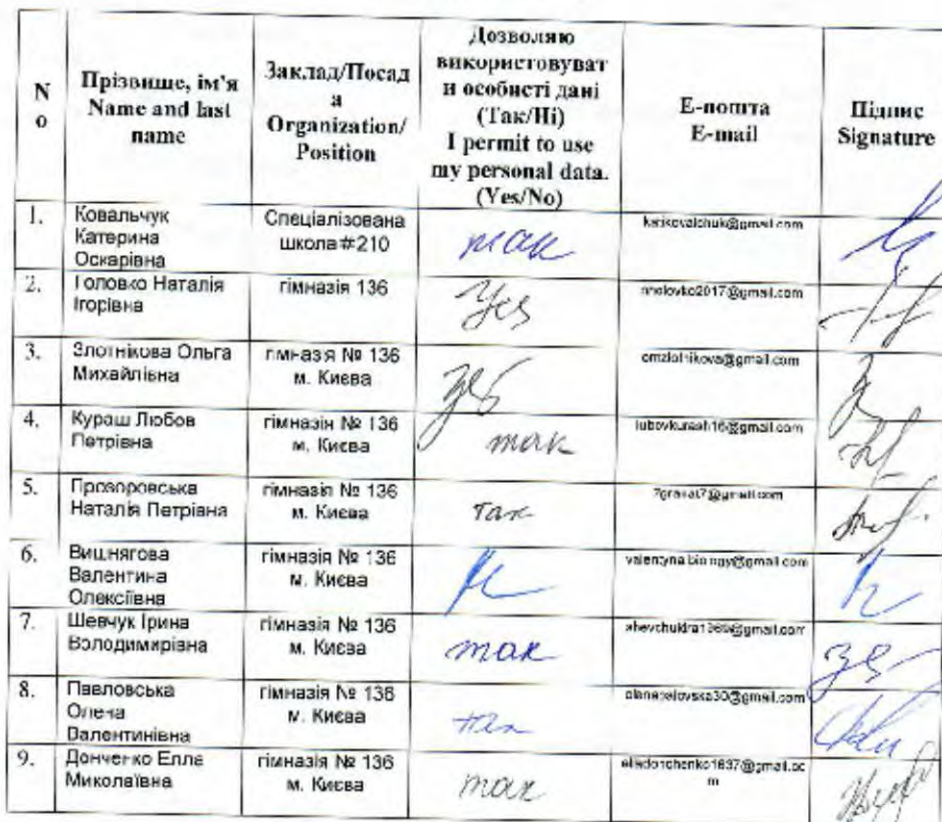 N
о
Прізвище, ім'я
Name and last
name
Заклад/Посад
а
Organization/
Position
Дозволяю
використовуват
и особисті дані
(Так/Ні)
I permit to use
my personal data.
(Yes/No)
Е-пошта
E-mail
Підпис
Signature
1. Ковальчук
Катерина
Оскарівна
Спеціалізована
школа#210
так
katkovalchuk@gmail.com
2. Головко Наталія
Ігорівна
гімназія 136
Yes
nholovko2017@gmail.com
3. Злотнікова Ольга
Михайлівна
гімназія № 136
м. Києва
Yes
omzlotnikova@gmail.com
4. Кураш Любов
Петрівна
гімназія № 136
м. Києва
так
lubovkurash16@gmail.com
5. Прозоровська
Наталія Петрівна
гімназія № 136
м. Києва
так
6. Вишнягова
Валентина
Олексіївна
гімназія № 136
м. Києва
7. Шевчук Ірина
Володимирівна
гімназія № 136
м. Києва
так
8. Павловська
Олена
Валентинівна
гімназія № 136
м. Києва
так
9. Донченко Елла
Миколаївна
гімназія № 136
м. Києва
так